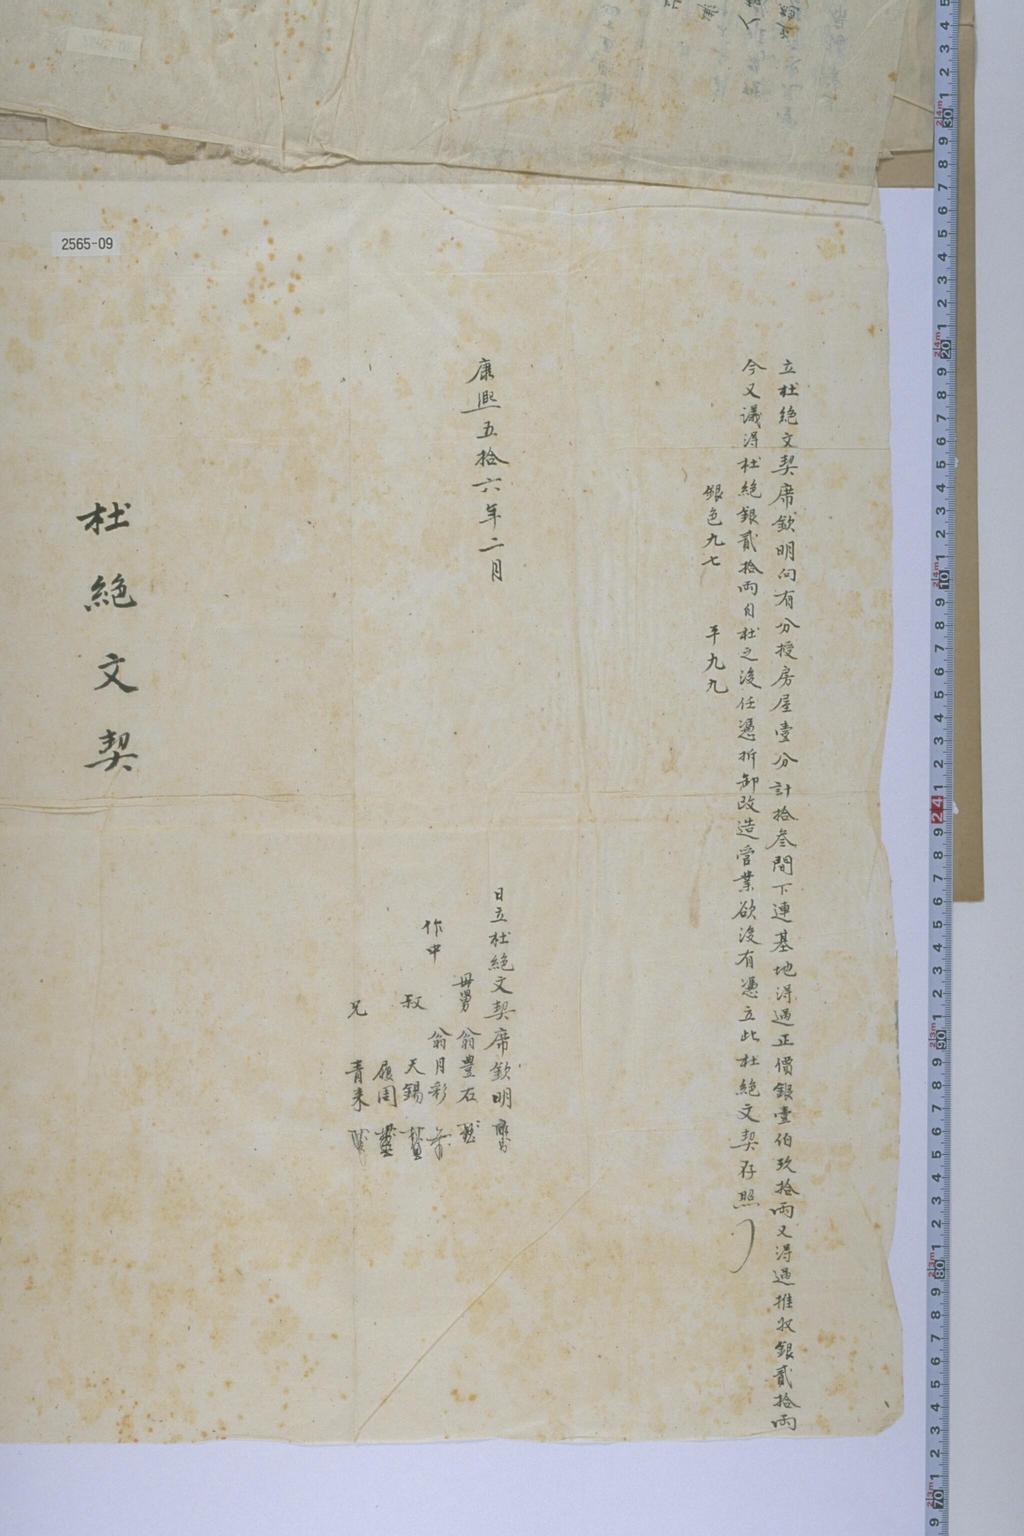 立杜絶文契席欽明向有分授房屋壹分計拾叁間下連基地得過正價銀壹伯玖拾兩又得過推收銀貳拾兩
今又議得杜絶銀貳拾兩自杜之後任憑折卸改造營業欲後有憑立此杜絶文契存照
銀色九七 平九九
康熙五拾六年二月 日立杜絶文契席欽明
母舅 翁豊石
作中 翁月彩
叔 天錫
履周
兄 青来
杜絶文契
2565-09